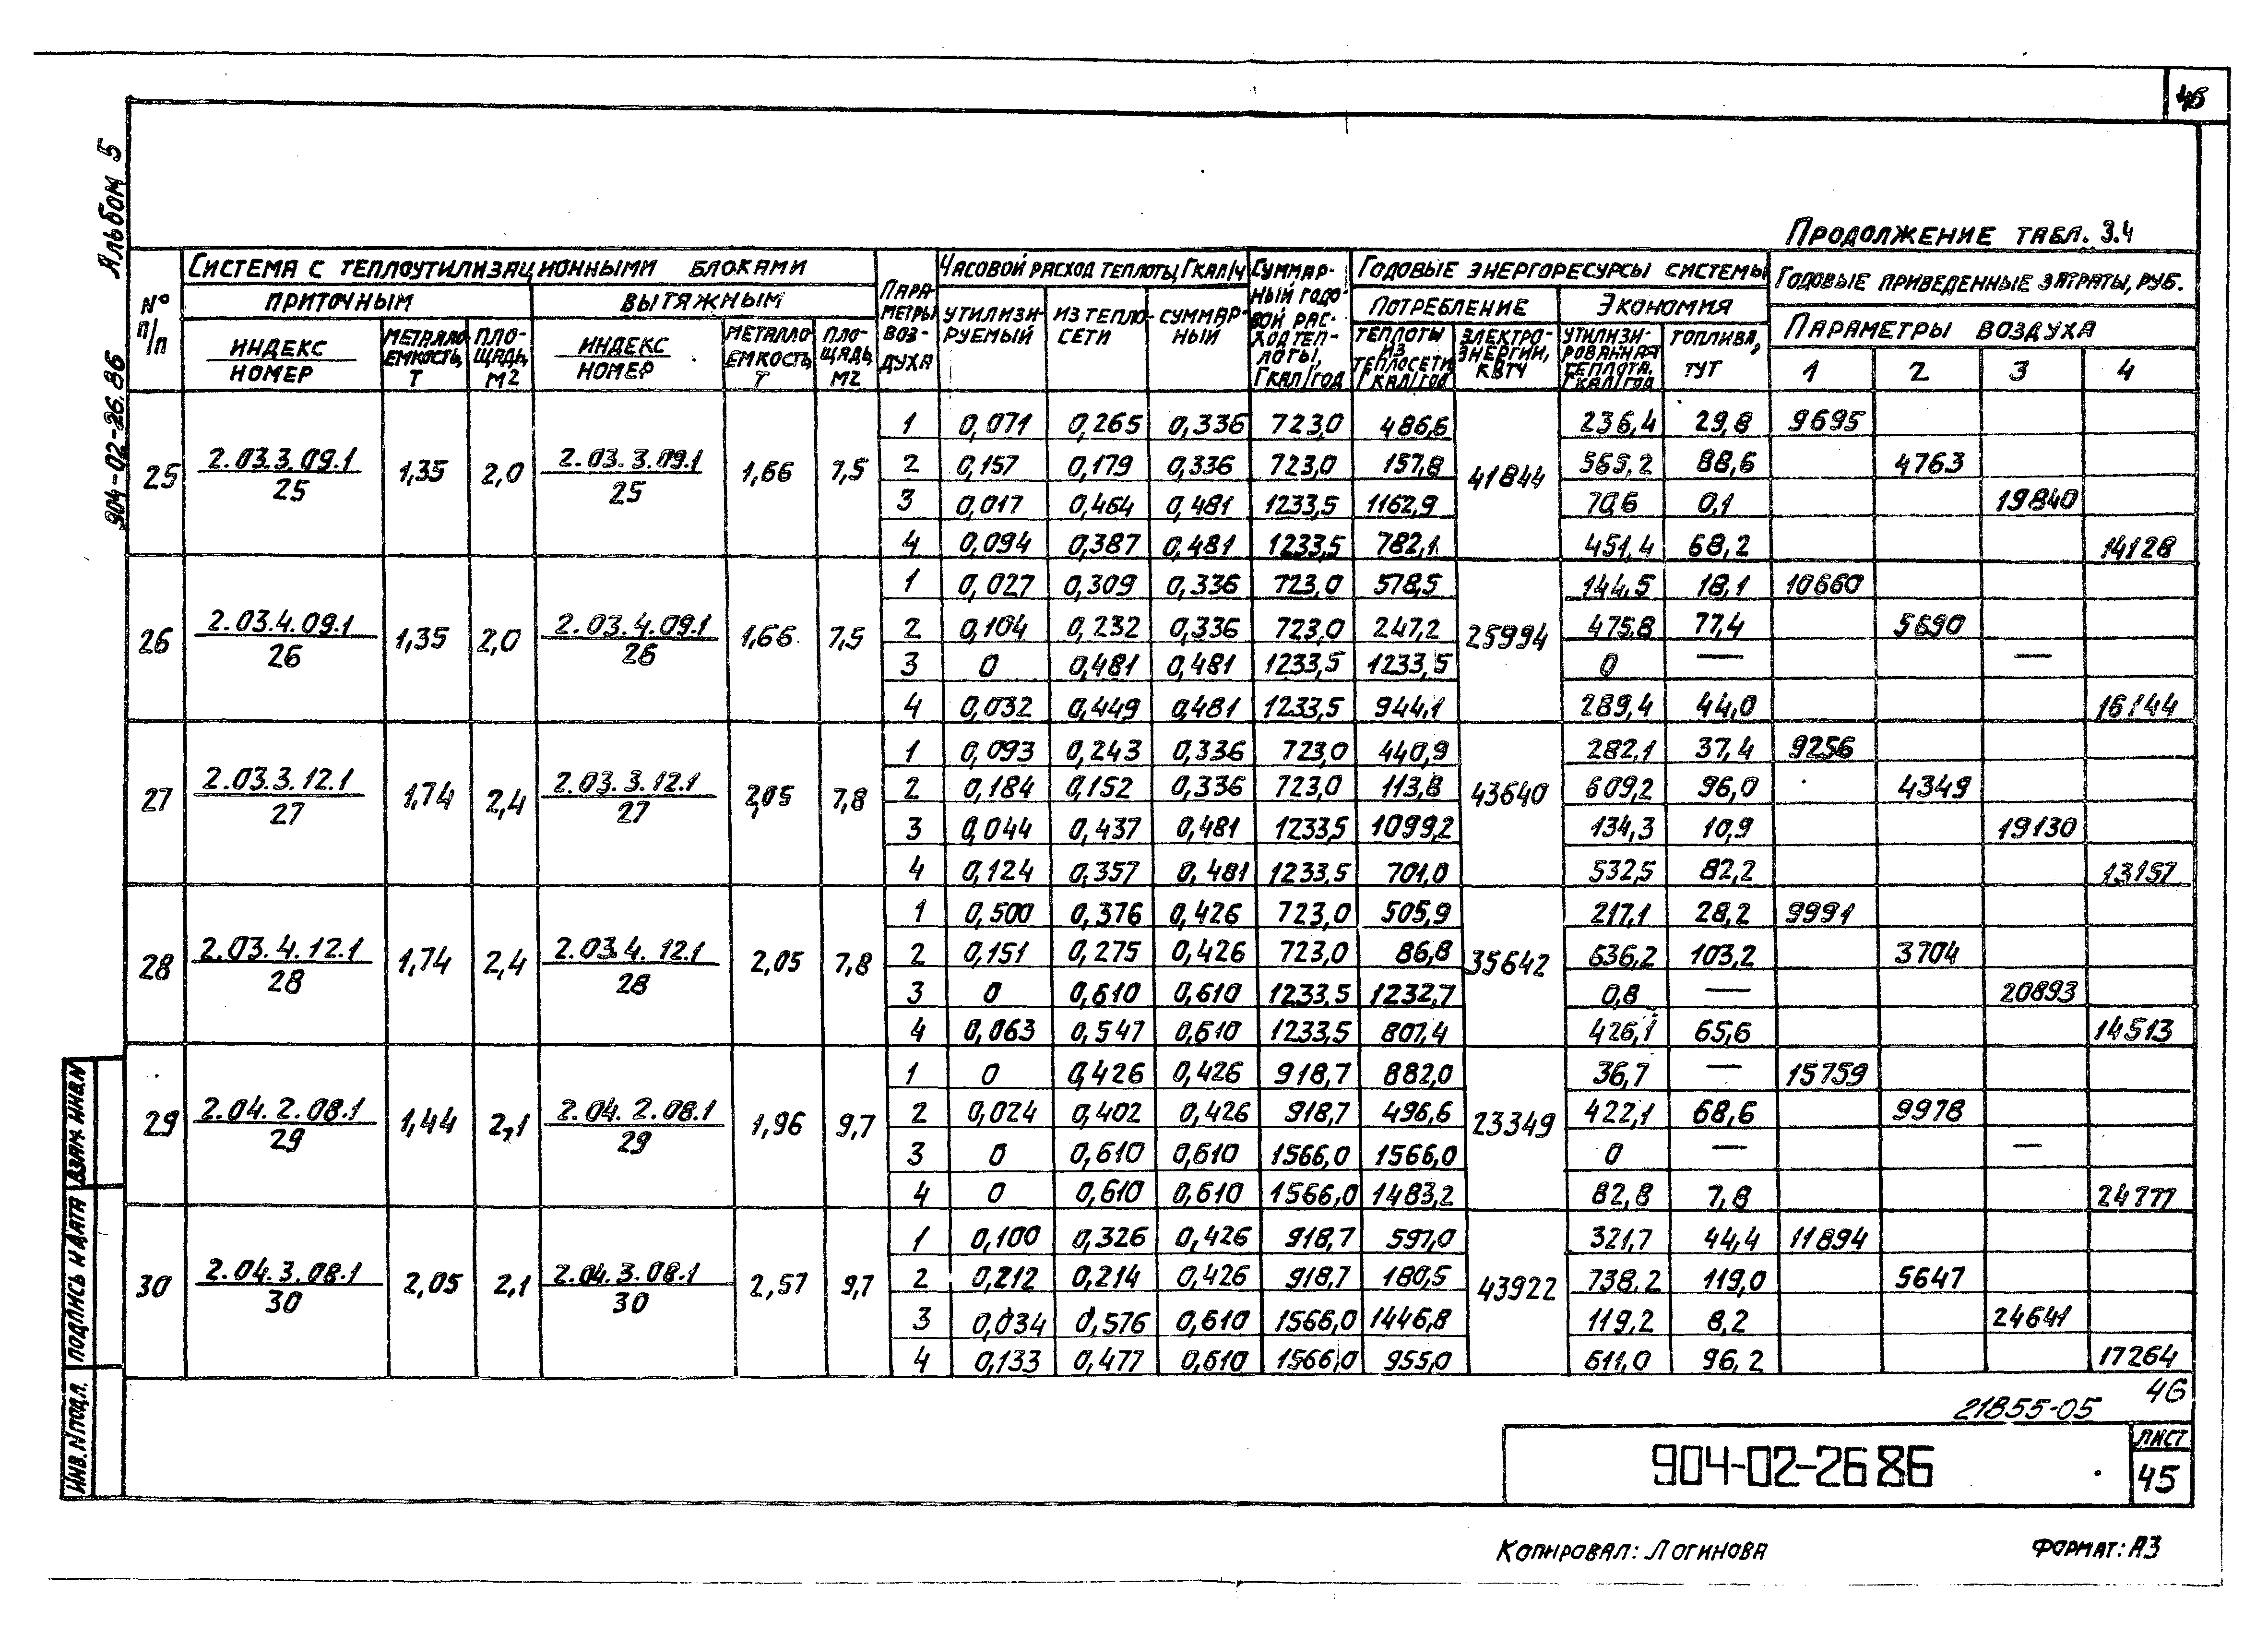 46
Альбом 5
904-02-26.86
Продолжение табл. 3.4
№ п/п
Система с теплоутилизационными блоками
приточным
вытяжным
индекс / номер
металлоемкость, т
площадь, м2
индекс / номер
металлоемкость, т
площадь, м2
Параметры воздуха
Часовой расход теплоты, Гкал/ч
утилизируемый
из теплосети
суммарный
Суммарный годовой расход теплоты, Гкал/год
Годовые энергоресурсы системы
Потребление
теплоты из теплосети Гкал/год
электроэнергии, кВтч
Экономия
утилизированная теплота, Гкал/год
топлива, тут
Годовые приведенные затраты, руб.
Параметры воздуха
1 2 3 4
25 2.03.3.09.1 / 25 1,35 2,0 2.03.3.09.1 / 25 1,66 7,5 41844
1 0,071 0,265 0,336 723,0 486,6 236,4 29,8 9695
2 0,157 0,179 0,336 723,0 157,8 565,2 88,6 4763
3 0,017 0,464 0,481 1233,5 1162,9 70,6 0,1 19840
4 0,094 0,387 0,481 1233,5 782,1 451,4 68,2 14128
26 2.03.4.09.1 / 26 1,35 2,0 2.03.4.09.1 / 26 1,66 7,5 25994
1 0,027 0,309 0,336 723,0 578,5 144,5 18,1 10660
2 0,104 0,232 0,336 723,0 247,2 475,8 77,4 5690
3 0 0,481 0,481 1233,5 1233,5 0 — —
4 0,032 0,449 0,481 1233,5 944,1 289,4 44,0 16144
27 2.03.3.12.1 / 27 1,74 2,4 2.03.3.12.1 / 27 2,05 7,8 43640
1 0,093 0,243 0,336 723,0 440,9 282,1 37,4 9256
2 0,184 0,152 0,336 723,0 113,8 609,2 96,0 4349
3 0,044 0,437 0,481 1233,5 1099,2 134,3 10,9 19130
4 0,124 0,357 0,481 1233,5 701,0 532,5 82,2 13157
28 2.03.4.12.1 / 28 1,74 2,4 2.03.4.12.1 / 28 2,05 7,8 35642
1 0,500 0,376 0,426 723,0 505,9 217,1 28,2 9991
2 0,151 0,275 0,426 723,0 86,8 636,2 103,2 3704
3 0 0,610 0,610 1233,5 1232,7 0,8 — 20893
4 0,063 0,547 0,610 1233,5 807,4 426,1 65,6 14513
29 2.04.2.08.1 / 29 1,44 2,1 2.04.2.08.1 / 29 1,96 9,7 23349
1 0 0,426 0,426 918,7 882,0 36,7 — 15759
2 0,024 0,402 0,426 918,7 496,6 422,1 68,6 9978
3 0 0,610 0,610 1566,0 1566,0 0 — —
4 0 0,610 0,610 1566,0 1483,2 82,8 7,8 24777
30 2.04.3.08.1 / 30 2,05 2,1 2.04.3.08.1 / 30 2,57 9,7 43922
1 0,100 0,326 0,426 918,7 597,0 321,7 44,4 11894
2 0,212 0,214 0,426 918,7 180,5 738,2 119,0 5647
3 0,034 0,576 0,610 1566,0 1446,8 119,2 8,2 24641
4 0,133 0,477 0,610 1566,0 955,0 611,0 96,2 17264
Взам. инв. N
Подпись и дата
Инв. N подл.
21855-05 46
904-02-26 86
Лист
45
Копировал: Логинова
Формат: А3